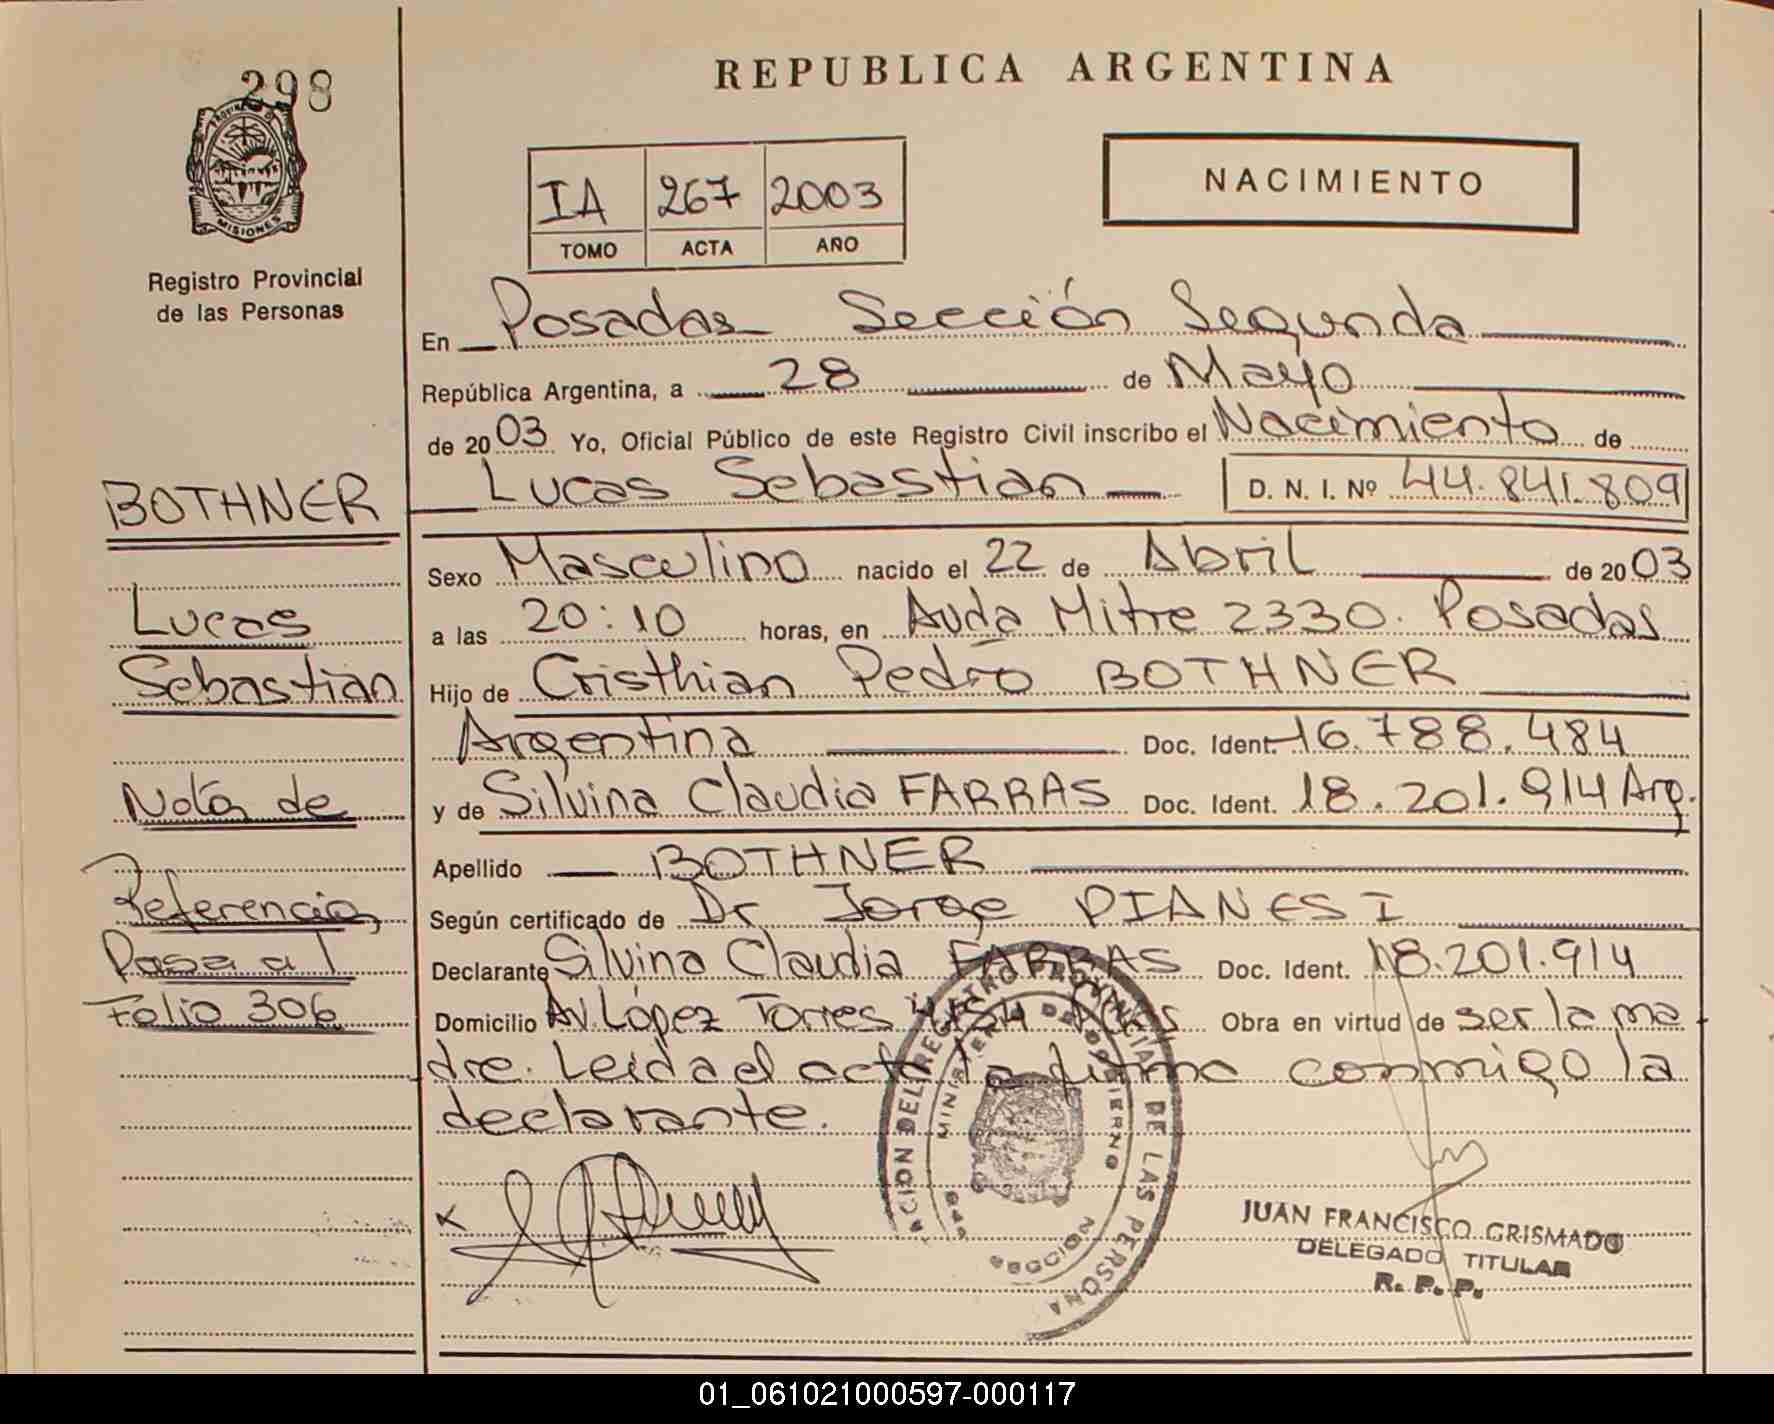 298
PROVINCIA DE
MISIONES
Registro Provincial
de las Personas
REPUBLICA ARGENTINA
IA 267 2003
TOMO ACTA AÑO
NACIMIENTO
En Posadas Sección Segunda
República Argentina, a 28 de Mayo
de 2003 Yo, Oficial Público de este Registro Civil inscribo el Nacimiento de
Lucas Sebastian D. N. I. Nº 44.841.809
Sexo Masculino nacido el 22 de Abril de 2003
a las 20:10 horas, en Avda Mitre 2330. Posadas
Hijo de Cristhian Pedro BOTHNER
Argentina Doc. Ident. 16.788.484
y de Silvina Claudia FARRAS Doc. Ident. 18.201.914 Arg.
Apellido BOTHNER
Según certificado de Dr Jorge PIANESI
Declarante Silvina Claudia FARRAS Doc. Ident. 18.201.914
Domicilio Av. López Torres Obra en virtud de ser la ma
dre. Leida el acta la firma conmigo la
declarante.
BOTHNER
Lucas
Sebastian
Nota de
Referencia,
Pasa al
Folio 306
DEL REGISTRO PROVINCIAL DE LAS PERSONAS
MINISTERIO DE GOBIERNO
JUAN FRANCISCO GRISMADO
DELEGADO TITULAR
R. P. P.
01_061021000597-000117